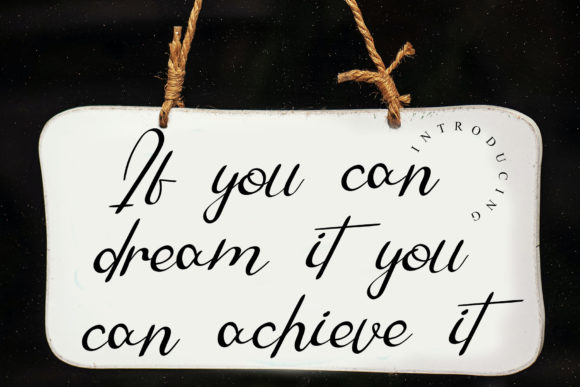 If you can
dream it you
can achieve it
INTRODUCING